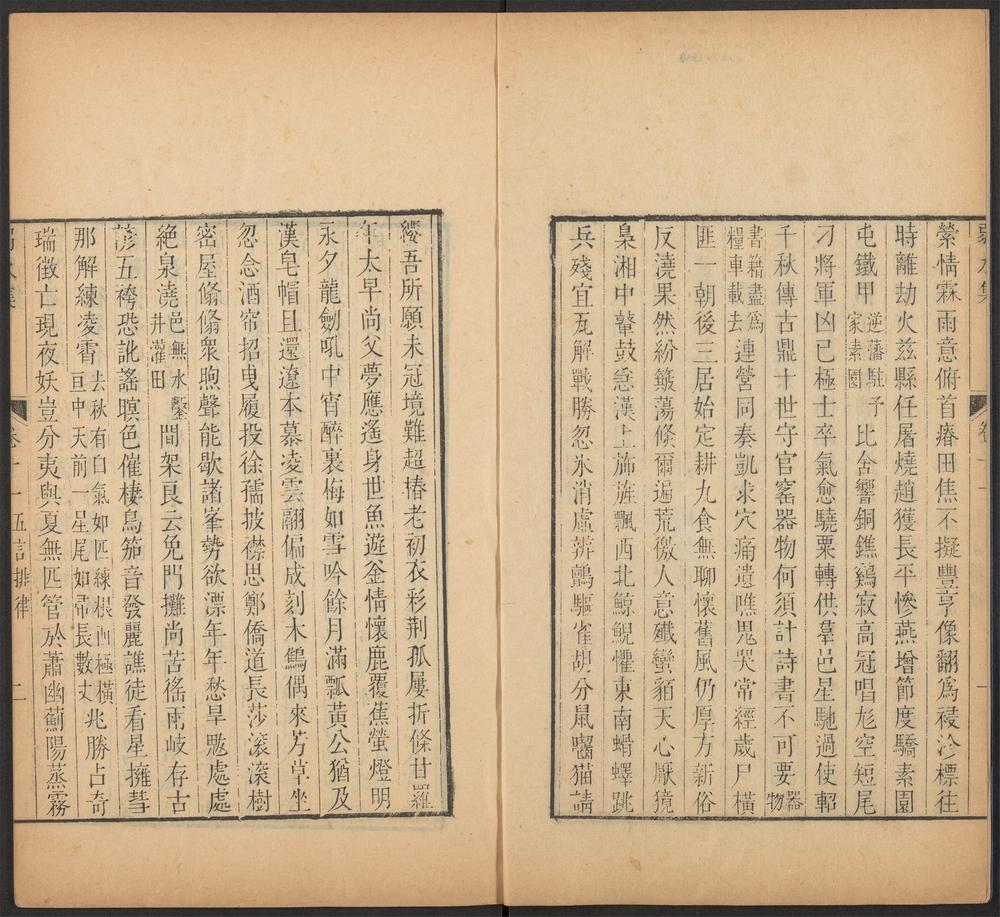 縈情霖雨意俯首瘠田焦不擬豐亨像翻爲祲沴標往
時離劫火兹縣任屠燒趙獲長平慘燕增節度驕素園
屯鐵甲逆藩駐予家素園比舍響銅鐎鷄寂高冠唱尨空短尾
刁將軍凶已極士卒氣愈驍粟轉供羣邑星馳過使軺
千秋傳古鼎十世守官窰器物何須計詩書不可要器物
書籍盡爲糧車載去連營同奏凱求穴痛遺噍鬼哭常經歲尸橫
匪一朝後三居始定耕九食無聊懷舊風仍厚方新俗
反澆果然紛簸蕩倏爾遍荒徼人意殲蠻貊天心厭獍
梟湘中鼙鼓急漢上旆旌飄西北鯨鯢懼東南蝟蠌跳
兵殘宜瓦解戰勝忽氷消虛辨鸇驅雀胡分鼠嚙猫請
纓吾所願未冠境難超椿老初衣彩荆孤屢折條甘羅
年太早尚父夢應遙身世魚遊釜情懷鹿覆蕉螢燈明
永夕龍劒吼中宵醉裏梅如雪吟餘月滿瓢黃公猶及
漢皂帽且還遼本慕凌雲翮偏成刻木鴞偶來芳草坐
忽念酒帘招曳履投徐孺披襟思鄭僑道長莎滾滾樹
密屋翛翛衆煦聲能歇諸峯勢欲漂年年愁旱魃處處
絶泉澆邑無水鑿井灌田間架良云免門攤尚苦徭雨岐存古
諺五袴恐訛謠暝色催棲鳥笳音發麗譙徒看星擁彗
那解練凌霄去秋有白氣如匹練根西極橫亘中天前一星尾如帚長數丈兆勝占奇
瑞徵亡現夜妖豈分夷與夏無匹管於蕭幽薊陽蒸霧
卷十一五言排律
二